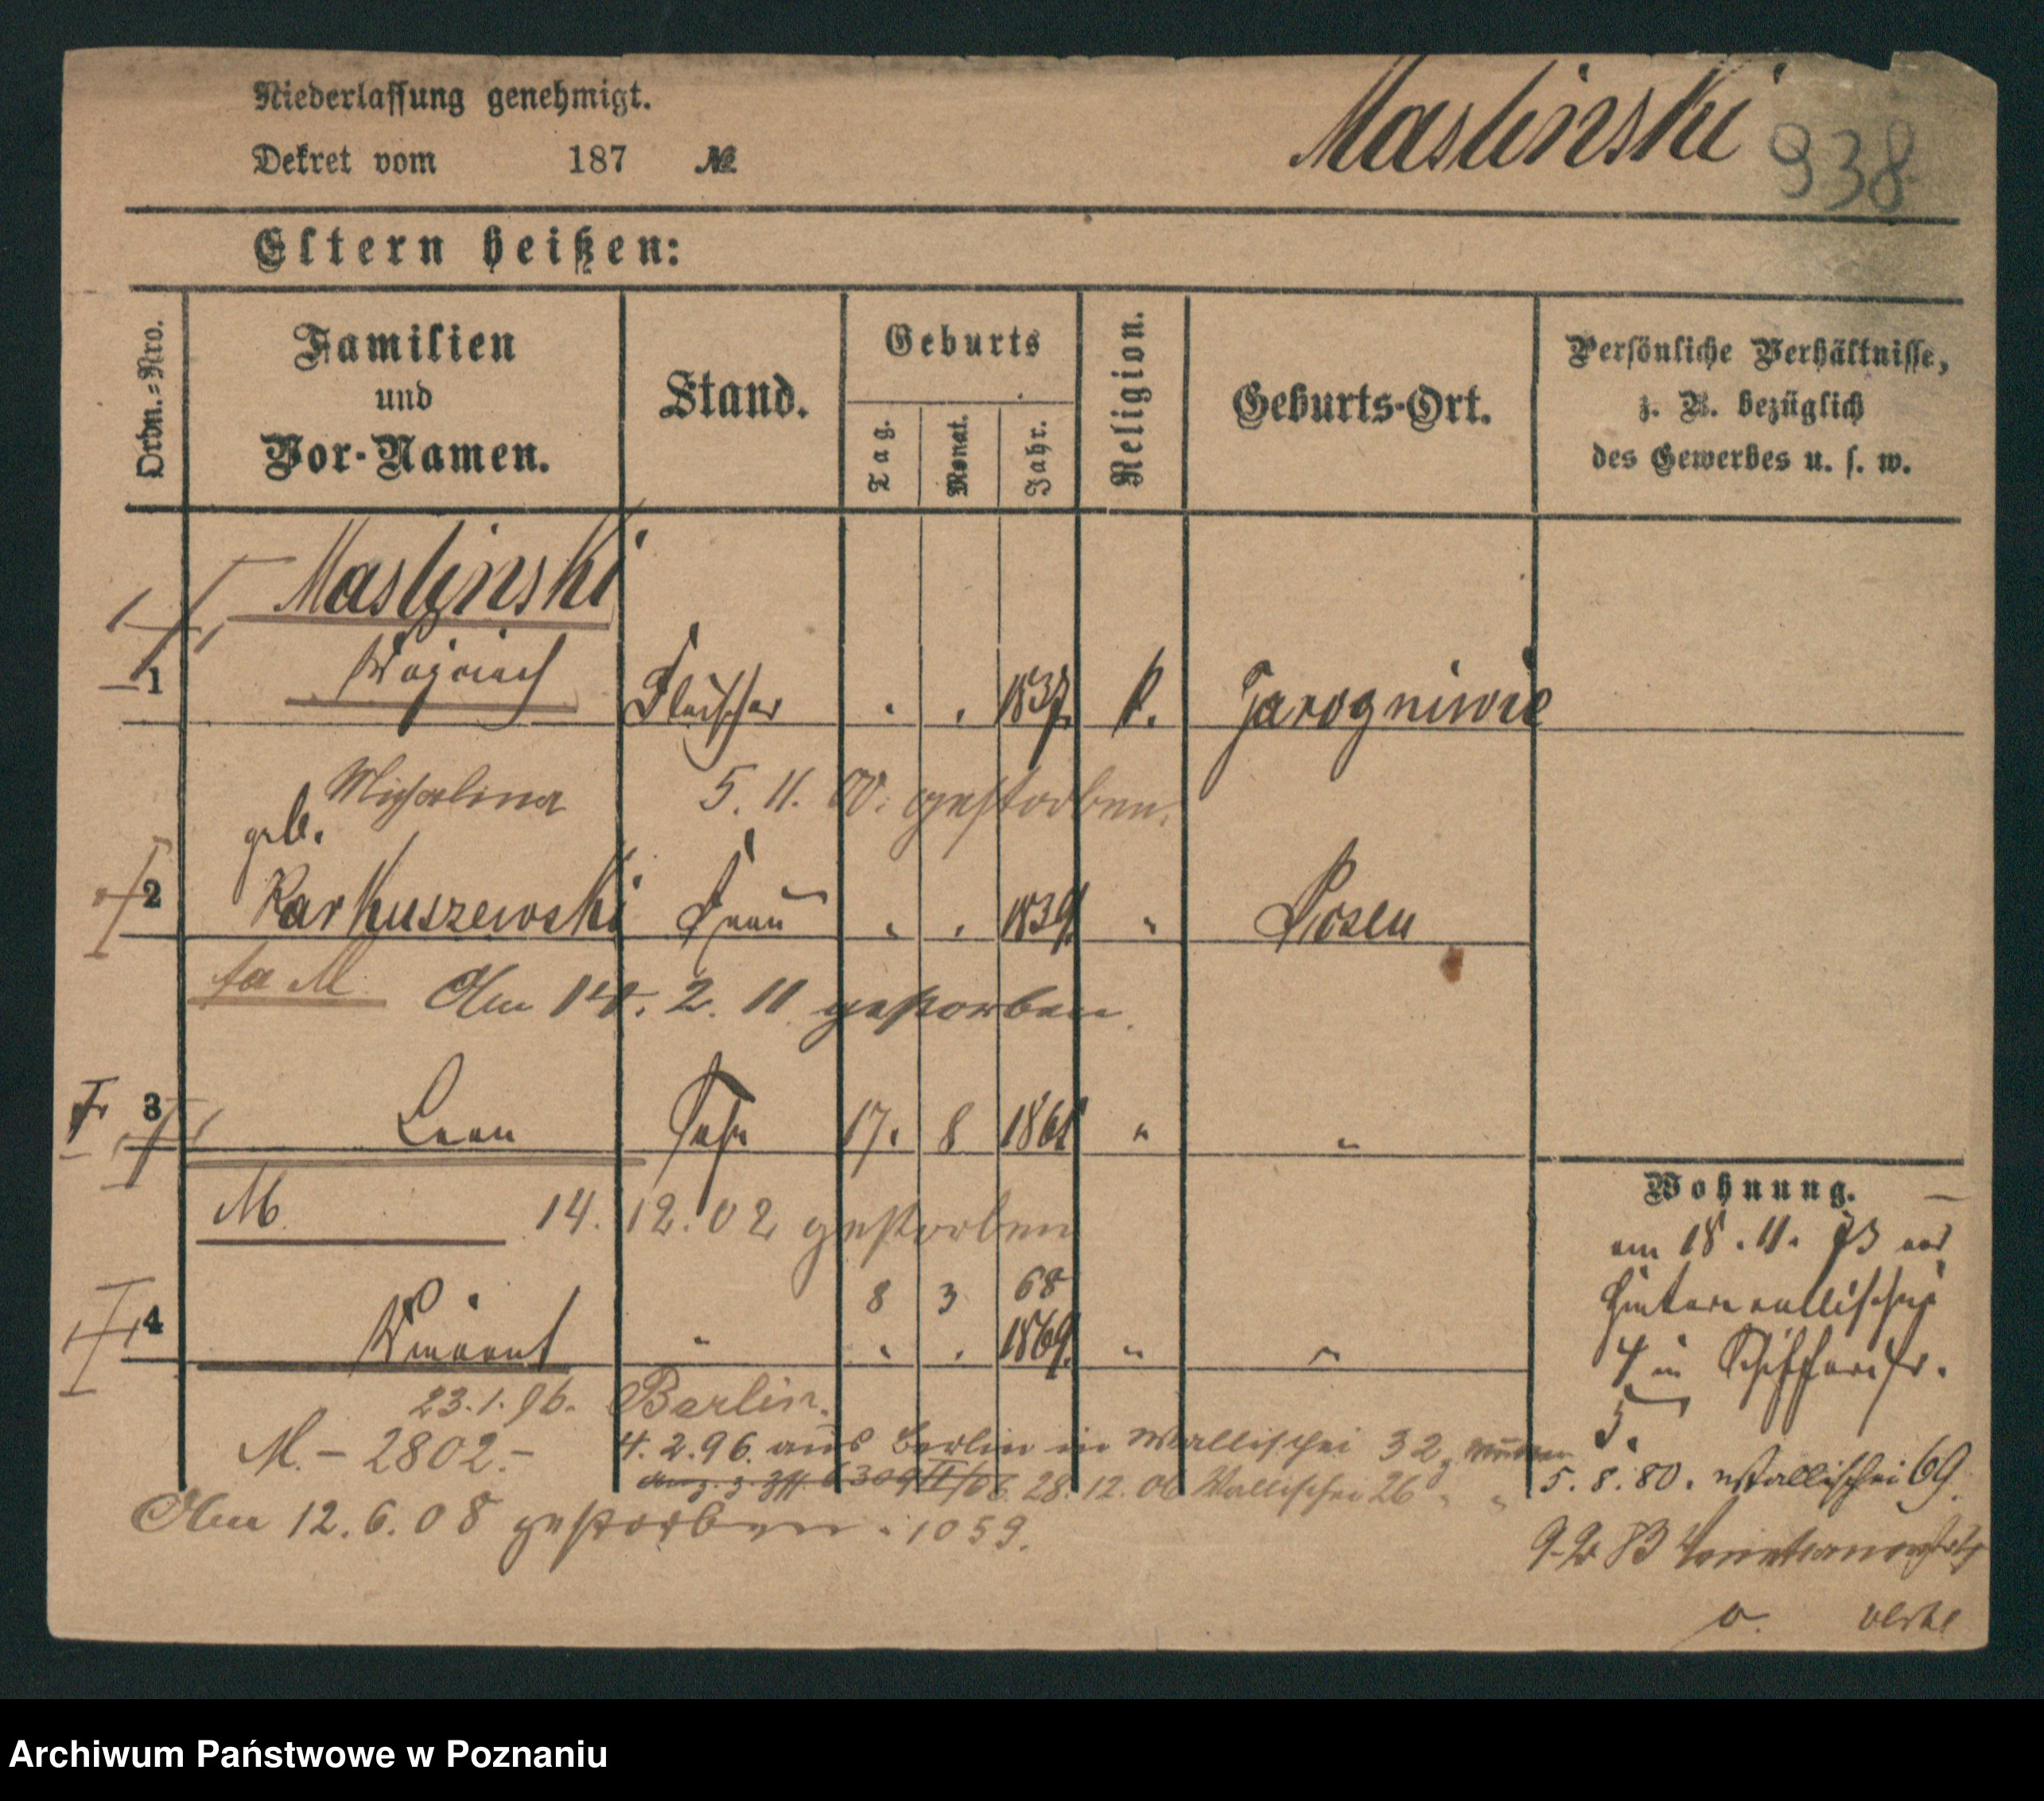 Niederlassung genehmigt.
Maslinski 938
Dekret vom 187 №
Eltern heißen:
Ordn.=Nro.
Familien
und
Vor-Namen.
Stand.
Geburts
Tag.
Monat.
Jahr.
Religion.
Geburts-Ort.
Persönliche Verhältnisse,
z. B. bezüglich
des Gewerbes u. s. w.
Maslinski
1 Wojciech Fleischer . . 1837. k. Jarogniwie
Michalina 5. 11. 00. gestorben.
geb.
2 Karkuszewski Frau . . 1839. " Posen
Am 14. 2. 11 gestorben.
3 Leon Sohn 17. 8 1861 " "
M. 14. 12. 02 gestorben
8 3 68
4 Vincent " . . 1869. " "
Wohnung.
am 18. 11. 73 von
Hinterwallischei
4 in Schifferstr.
5.
23. 1. 96. Berlin.
M. – 2802. –
4. 2. 96. aus Berlin in Wallischei 32,
28. 12. 06 Wallischei 26 " "
5. 8. 80. Wallischei 69.
Am 12. 6. 08 gestorben. 1059.